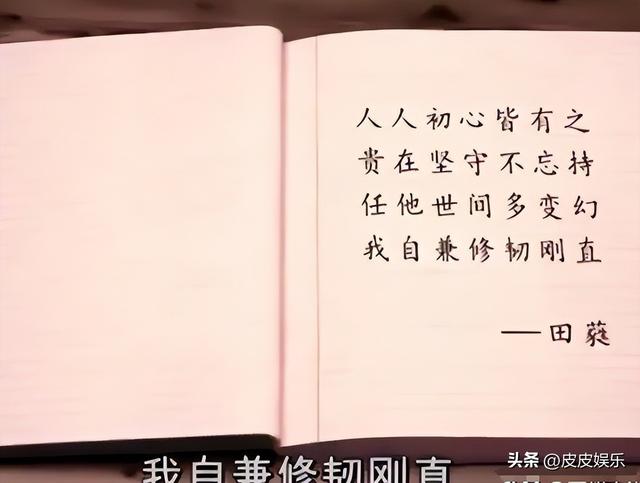 人人初心皆有之
贵在坚守不忘持
任他世间多变幻
我自兼修韧刚直
——田蕤
我自兼修韧刚直
头条 @皮皮娱乐